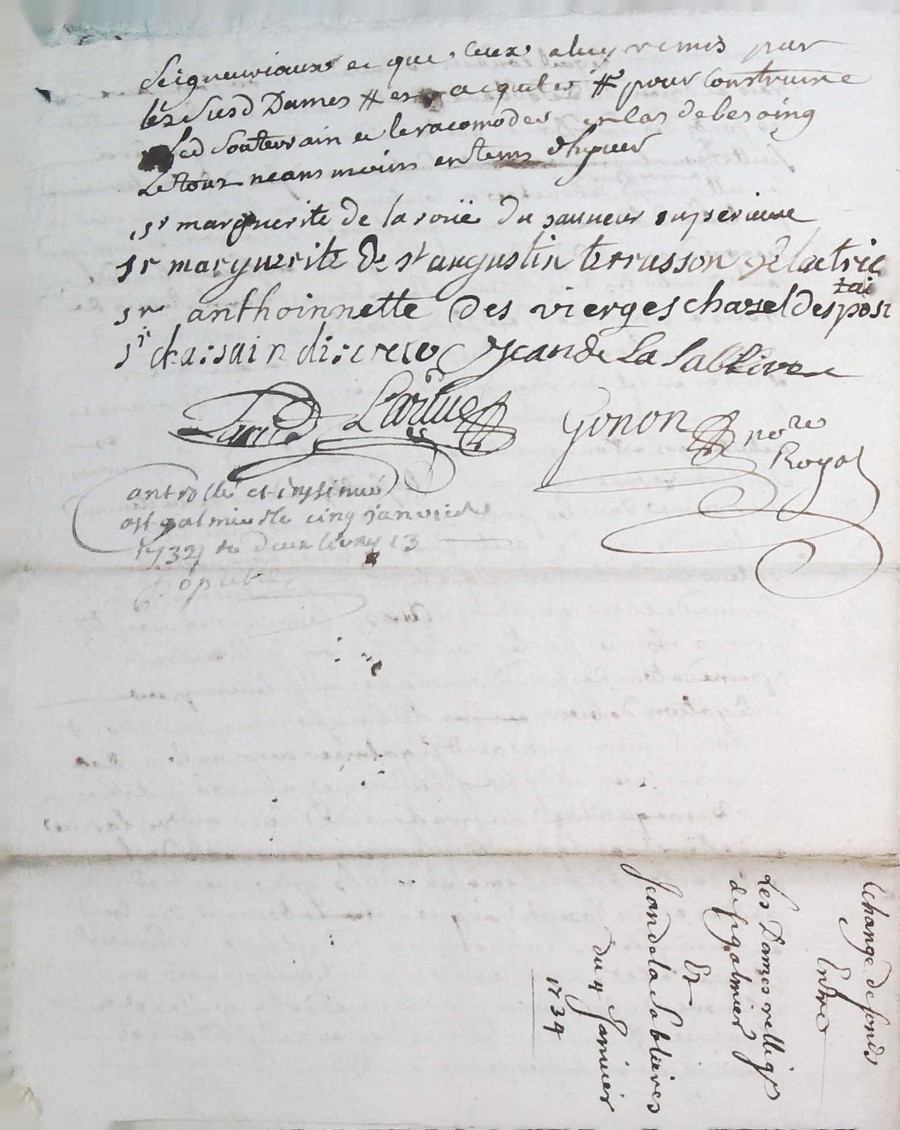 Seigneuriaux et que ceux a luy remis par
lesd Susd Dames # est acquités # pour construire
led souterrain et le racomoder en cas de besoing
Le tout neansmoins en tems d'hyver
sr marguerite de la rouë du sauveur superieure
sr marguerite de st augustin terrasson
sr anthoinnette des vierges chazel despositai
sr chassain discrete Jean de La Sabliere
Larue Gonon nore
Royal
controllé et insinué
a st galmier le cinq janvier
deux livres 13
Echange de fonds
Entre
Les Dames relligs
de st galmier
Et
Jean de la Sablieres
du 4 Janvier
1734